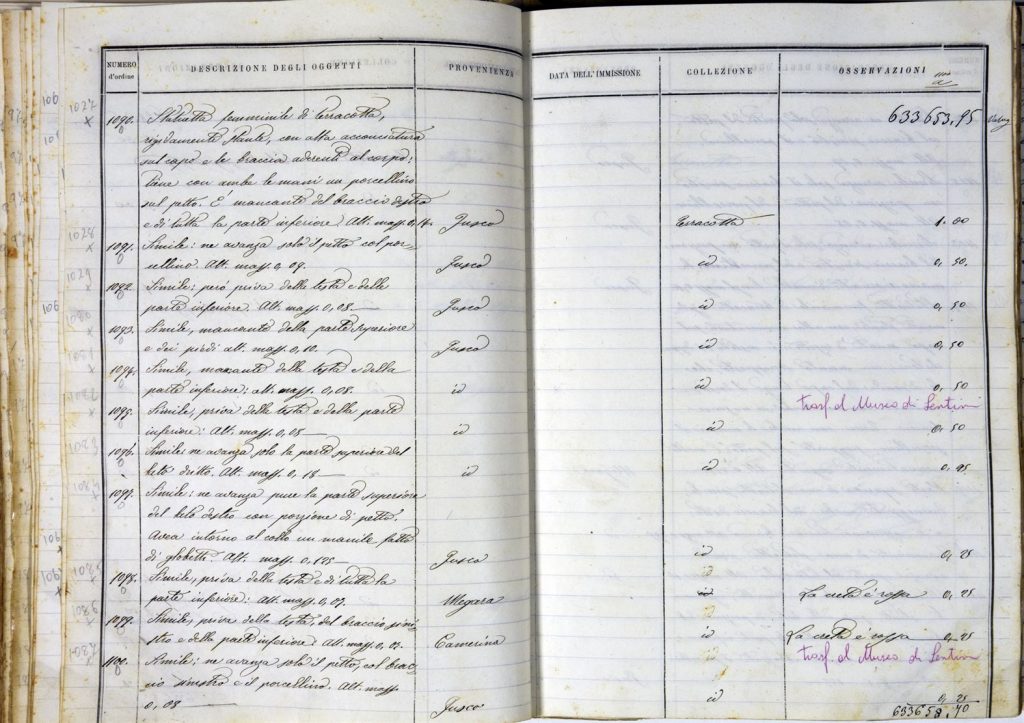 NUMERO d'ordine
DESCRIZIONE DEGLI OGGETTI
PROVENIENZA
DATA DELL'IMMISSIONE
COLLEZIONE
OSSERVAZIONI
633653,95
1090. Statuetta femminile di terracotta,
rigidamente stante, con alta acconciatura
sul capo e le braccia aderenti al corpo:
tiene con ambe le mani un porcellino
sul petto. È mancante del braccio destro
e di tutta la parte inferiore. Alt. mass. 0,14. Jusco terracotta 1.00
1091. Simile: ne avanza solo il petto col por-
cellino. Alt. mass. 0,09. Jusco id 0,50.
1092. Simile: però priva della testa e della
parte inferiore. Alt. mass. 0,08. Jusco id 0,50
1093. Simile, mancante della parte superiore
e dei piedi alt. mass. 0,10. Jusco id 0,50
1094. Simile, mancante della testa e della
parte inferiore: alt. mass. 0,08. id id 0,50
trasf. al Museo di Lentini
1095. Simile, priva della testa e della parte
inferiore: Alt. mass. 0,05 id id 0,50
1096. Simile: ne avanza solo la parte superiore del
lato dritto. Alt. mass. 0,18 id id 0,25
1097. Simile: ne avanza pure la parte superiore
del lato destro con porzione di petto.
Avea intorno al collo un monile fatto
di globetti. Alt. mass. 0,125 Jusco id 0,25
1098. Simile, priva della testa e di tutta la id
parte inferiore: Alt. mass. 0,07. Megara La creta è rossa 0,25
1099. Simile, priva della testa, del braccio sini-
stro e della parte inferiore: Alt. mass. 0,07. Camerina id La creta è rossa 0,25
trasf. al Museo di Lentini
1100. Simile: ne avanza solo il petto, col brac- id
cio sinistro e il porcellino. Alt. mass.
0,08 Jusco id 0,25
633658,70